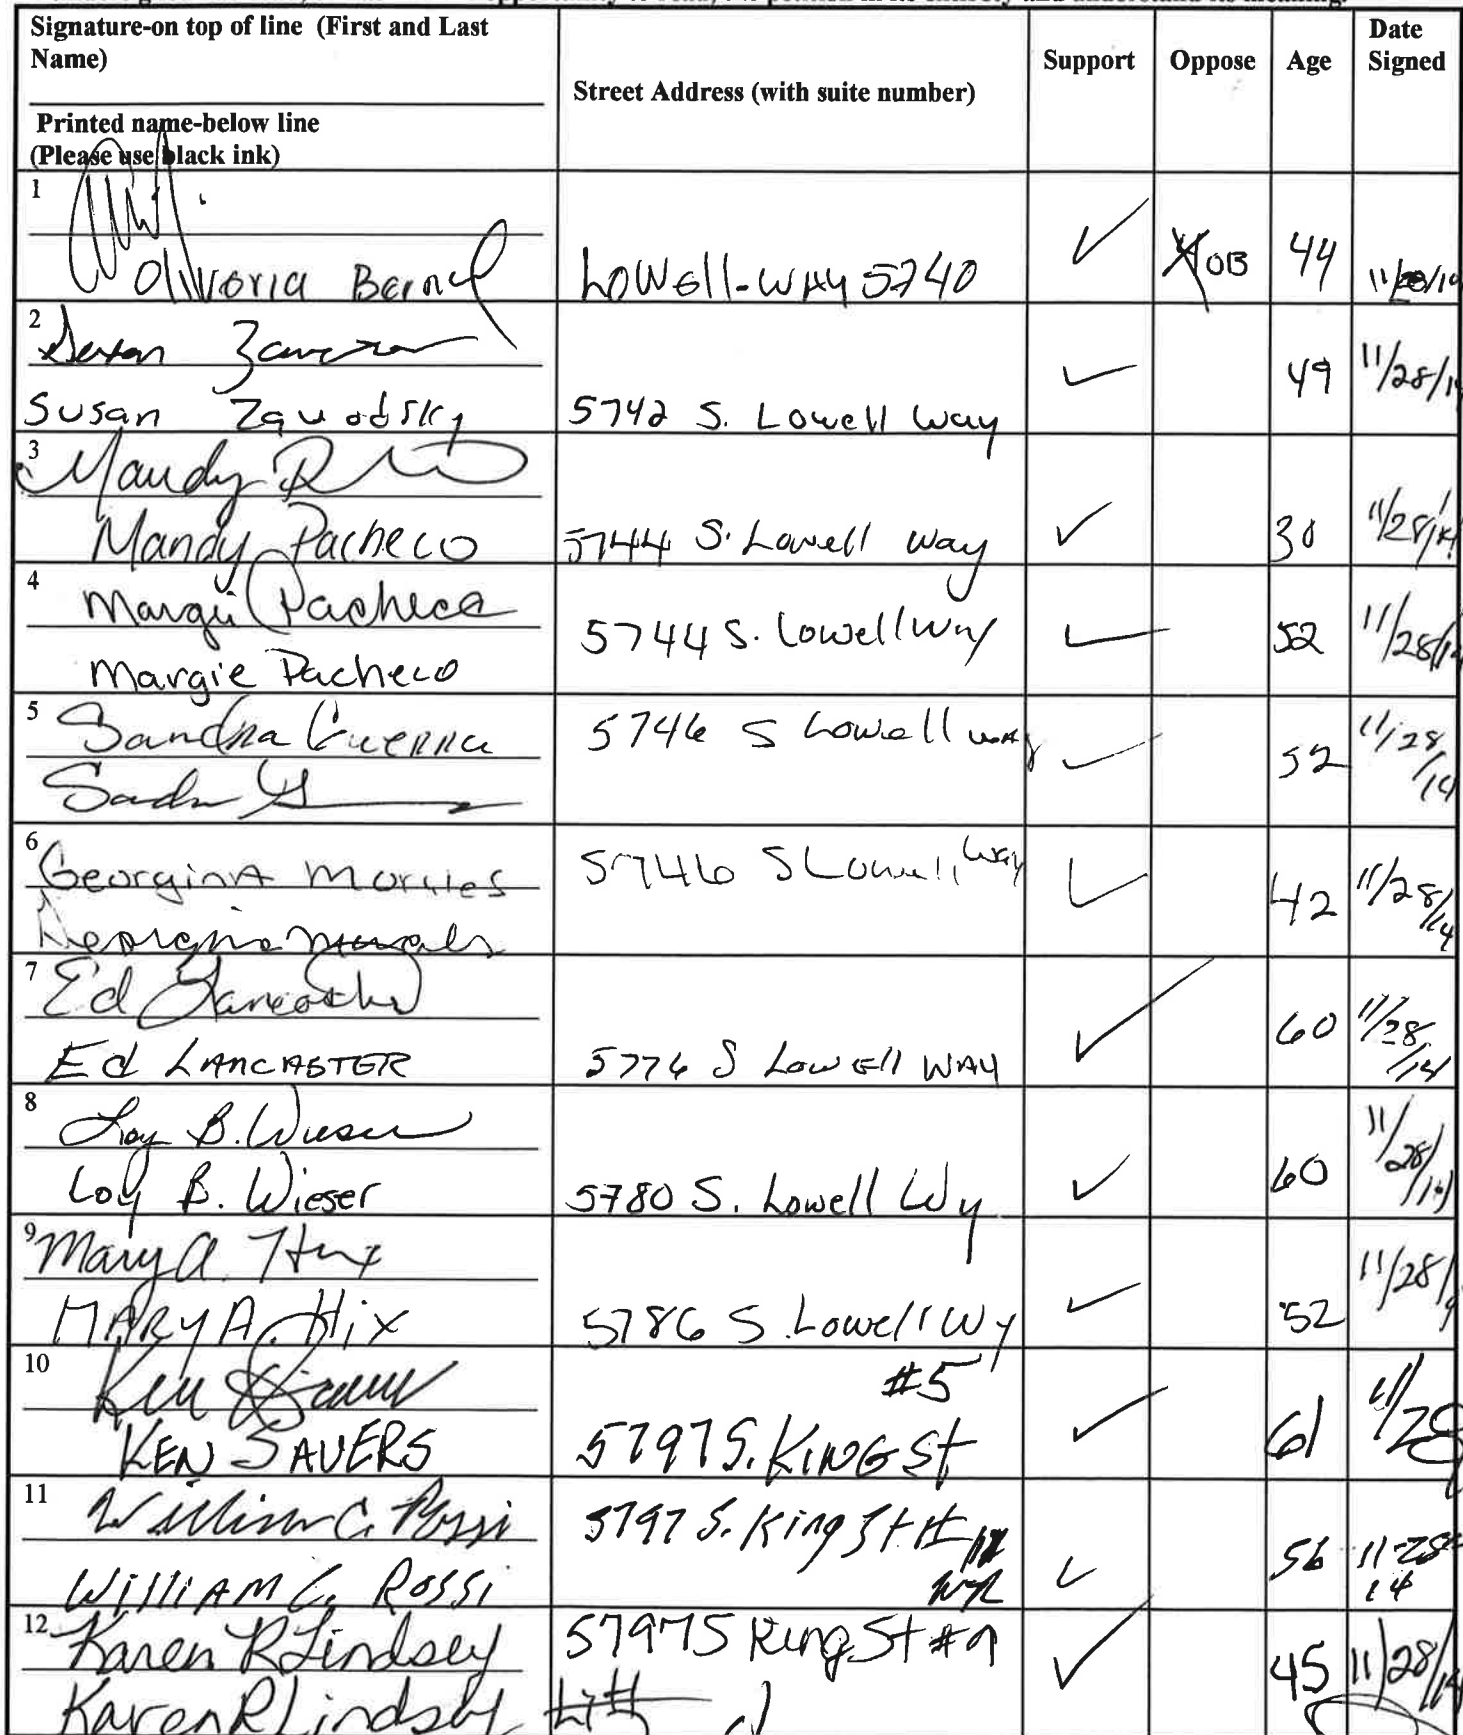 Signature-on top of line (First and Last
Name)
Printed name-below line
(Please use black ink)
Street Address (with suite number)
Support
Oppose
Age
Date
Signed
1
Berny
LOWell-WAY 5740
✓
OB
44
2
Susan
Susan Zavodsky
5742 S. Lowell Way
✓
49
11/28/1
3
Mandy
Mandy Pacheco
5744 S. Lowell Way
✓
30
11/28/14
4
Margie Pacheco
Margie Pacheco
5744 S. Lowell Wy
✓
52
11/28/1
5
Sandra Guerra
5746 S Lowell way
✓
52
11/28
/14
6
GeorginA Morales
Georgina Morales
5746 S Lowell Way
✓
42
11/28/14
7
Ed Lancaster
Ed LANCASTER
5776 S LowEll WAY
✓
60
11/28
/14
8
Loy B. Wieser
Loy B. Wieser
5780 S. Lowell Wy
✓
60
11/28/14
9
Mary A. Hix
MARY A. Hix
5786 S. Lowell Wy
✓
52
11/28/
10
Ken Sauers
KEN SAUERS
#5
5797 S. KING St
✓
61
11/28
11
William C. Rossi
WilliAM C. Rossi
5797 S. King St #
✓
56
11-28-
14
12
Karen R Lindsey
Karen R Lindsey
5797 S King St #9
Litt
✓
45
11/28/14